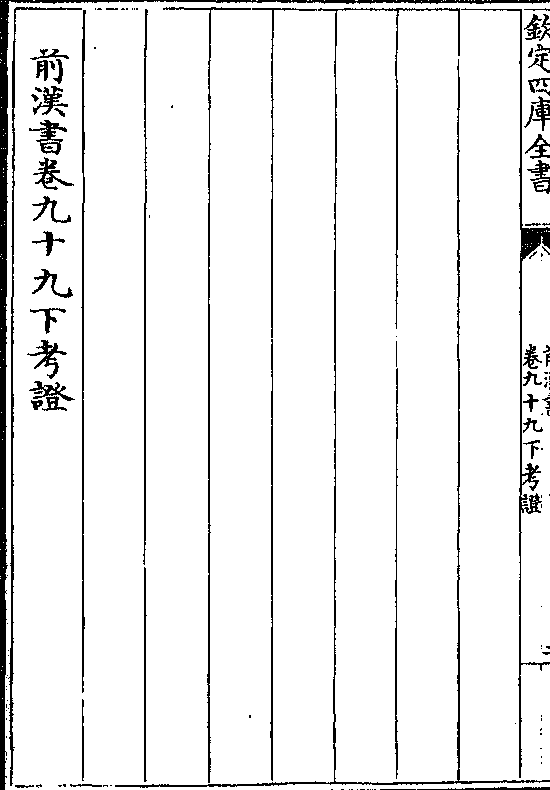 欽定四庫全書
前漢書
卷九十九下考證
前漢書卷九十九下考證